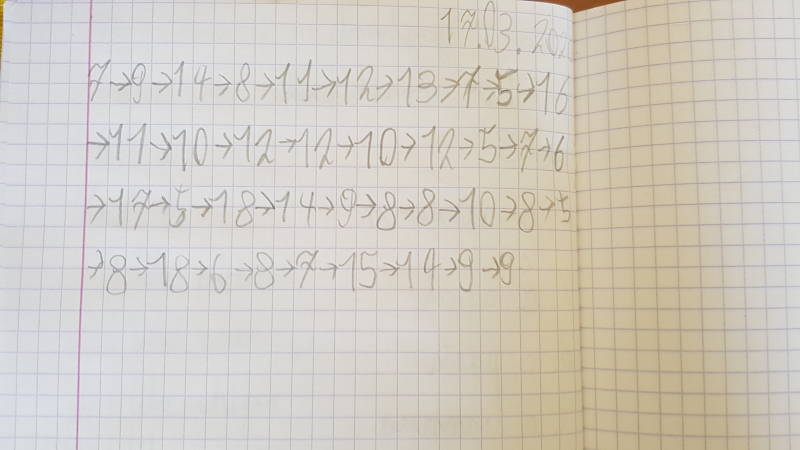 17.03.20
7→9→14→8→11→12→13→7→5→16
→11→10→12→12→10→12→5→7→6
→17→5→18→14→9→8→8→10→8→5
→8→18→6→8→7→15→14→9→9